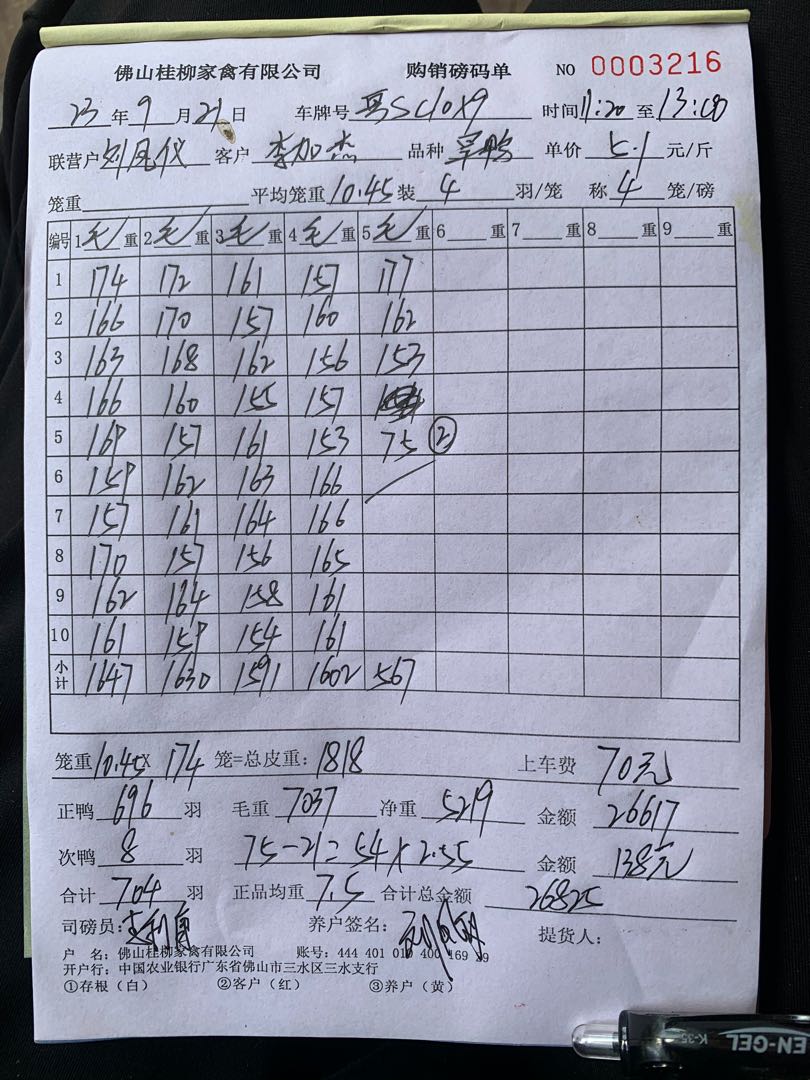 佛山桂柳家禽有限公司 购销磅码单 NO 0003216
23 年 9 月 21 日 车牌号 SC10X9 时间 11:20 至 13:00
联营户 刘凤仪 客户 李加杰 品种 单价 5.1 元/斤
笼重 平均笼重 10.45 装 4 羽/笼 称 4 笼/磅
编号 1 毛 重 2 毛 重 3 毛 重 4 毛 重 5 毛 重 6 重 7 重 8 重 9 重
1 174 172 161 157 177
2 166 170 157 160 162
3 163 168 162 156 153
4 166 160 155 157
5 169 157 161 153 75 ②
6 159 162 163 166
7 157 161 164 166
8 170 157 156 165
9 162 164 158 161
10 161 159 154 161
小计 1647 1630 1591 1602 567
笼重 10.45 X 174 笼=总皮重: 1818 上车费 70元
正鸭 696 羽 毛重 7037 净重 5219 金额 26617
次鸭 8 羽 75-21=54×2.55 金额 138元
合计 704 羽 正品均重 7.5 合计总金额 26825
司磅员: 养户签名: 提货人:
户 名: 佛山桂柳家禽有限公司 账号: 444 401 010 400 169 29
开户行: 中国农业银行广东省佛山市三水区三水支行
①存根（白） ②客户（红） ③养户（黄）
EN-GEL K-35